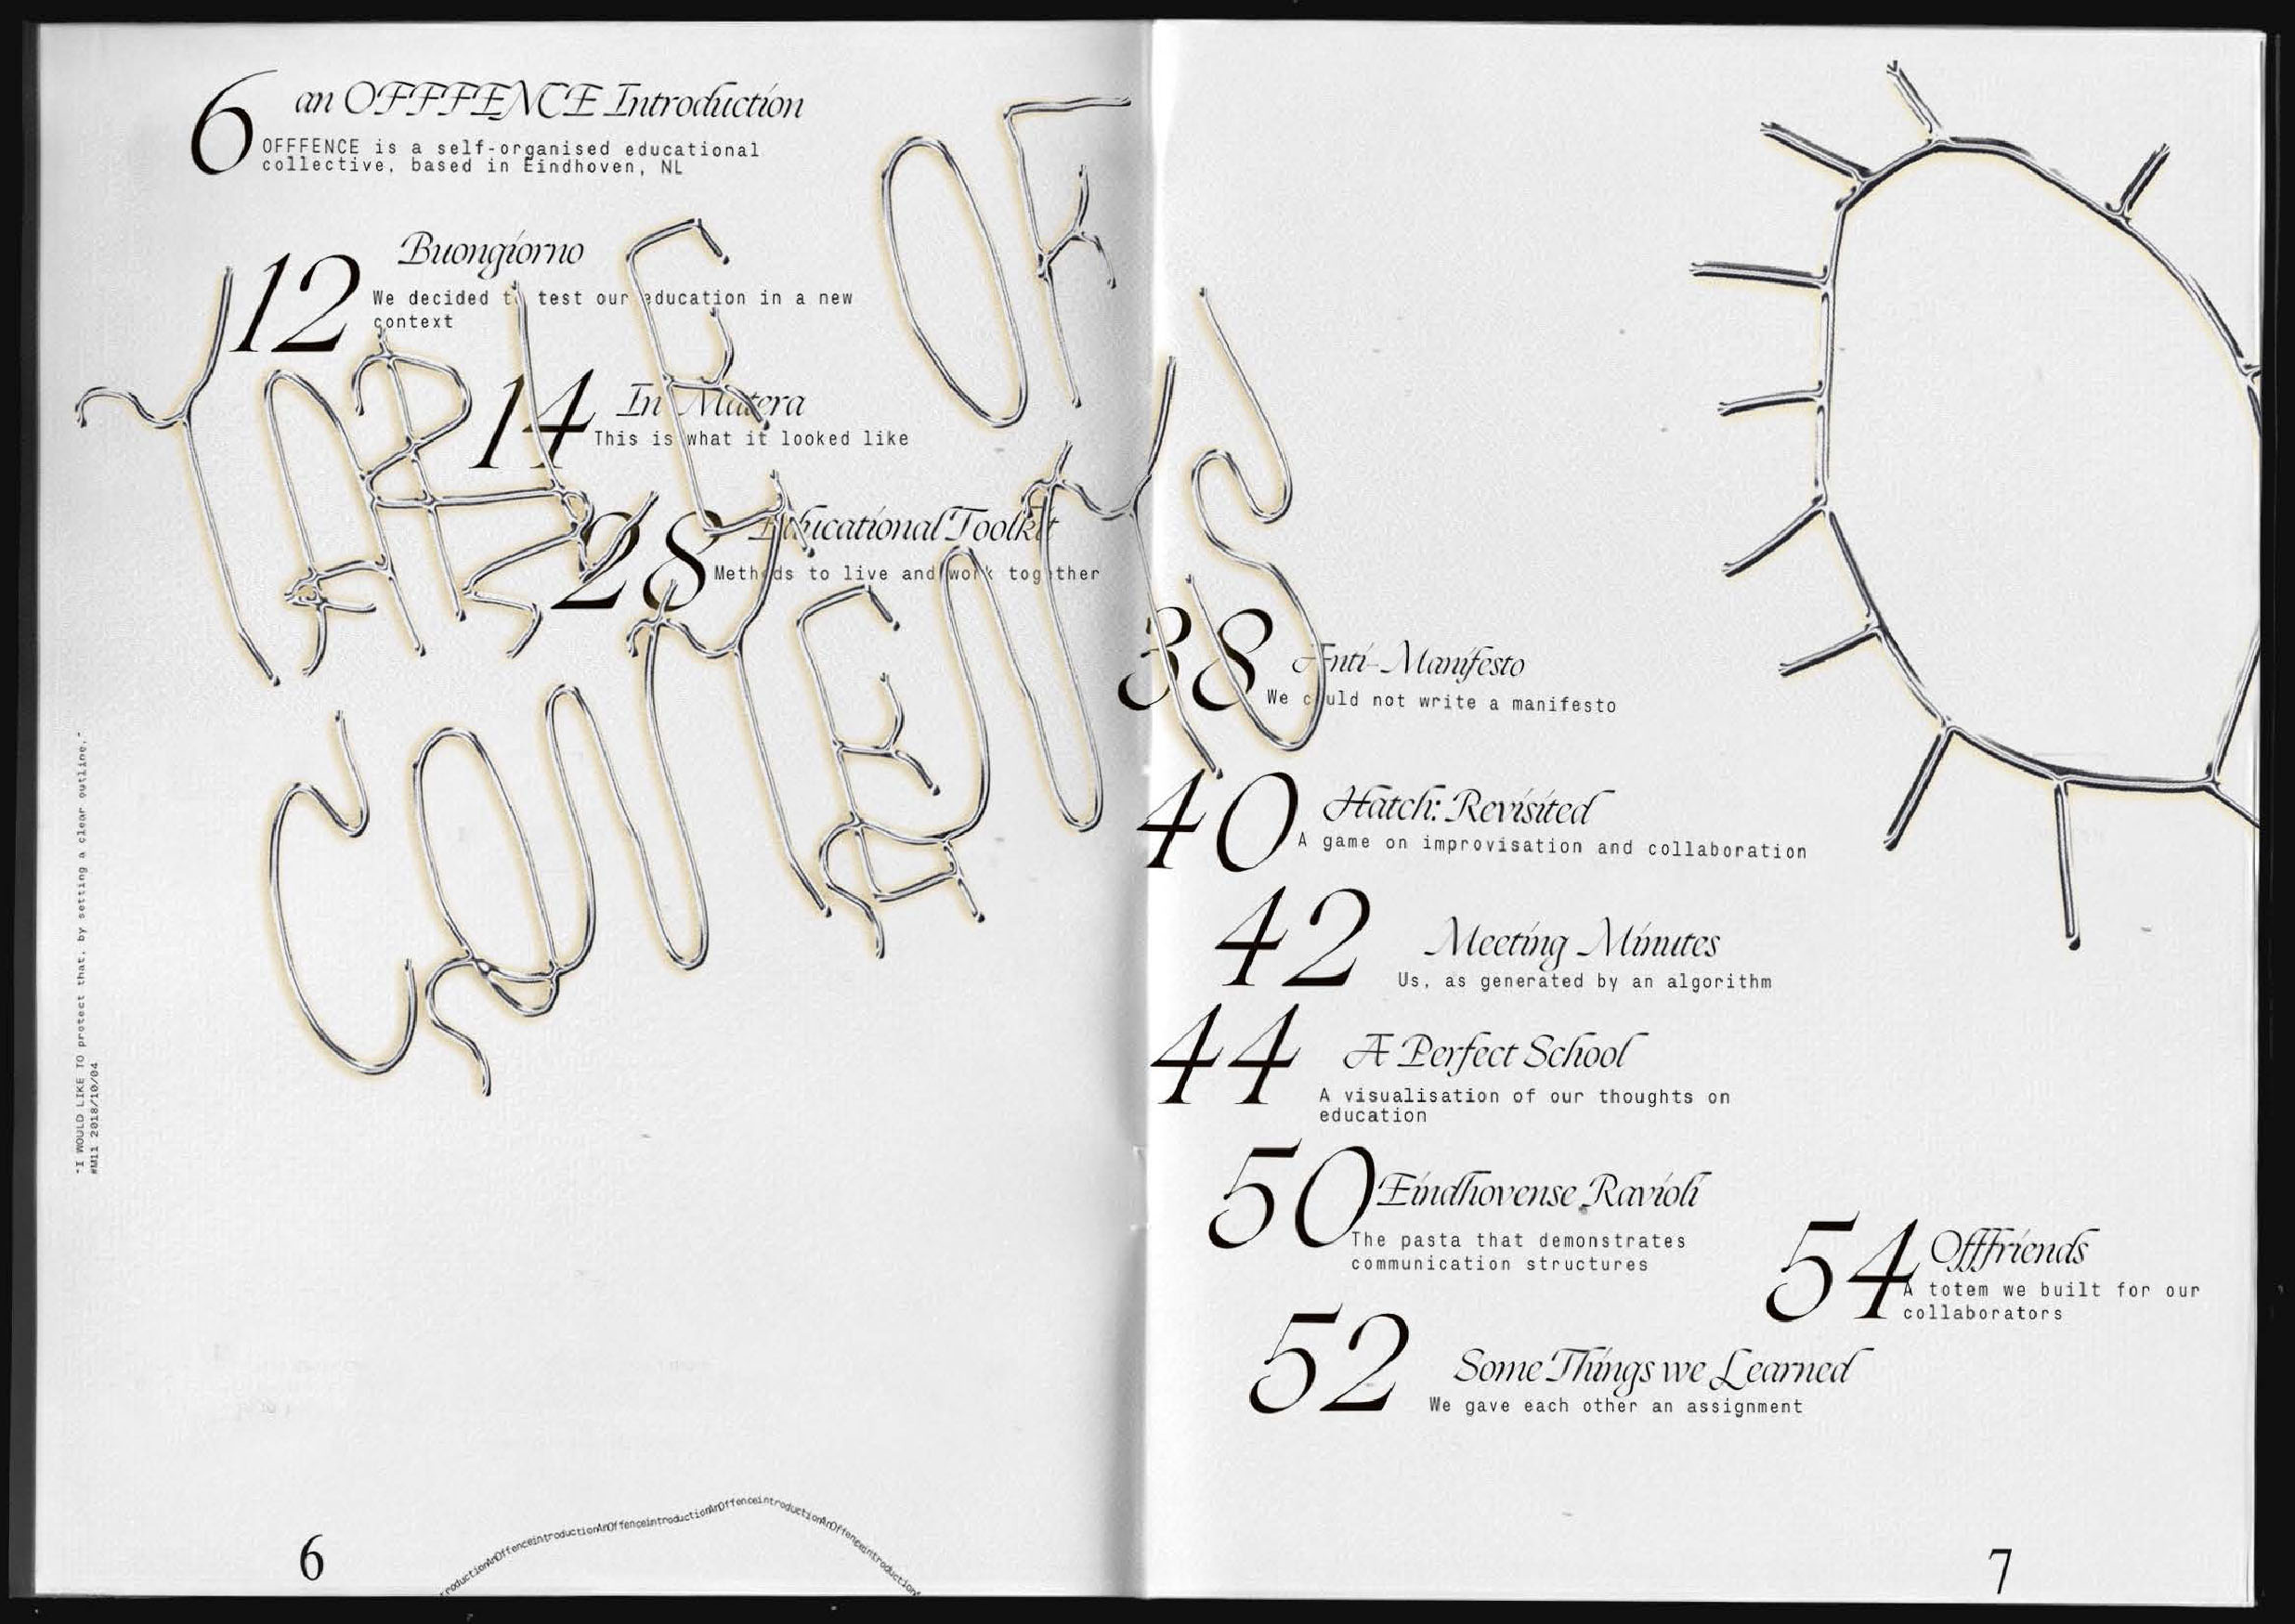 6
an OFFFENCE Introduction
OFFFENCE is a self-organised educational
collective, based in Eindhoven, NL
12
Buongiorno
We decided to test our education in a new
context
14
In Matera
This is what it looked like
28
Educational Toolkit
Methods to live and work together
TABLE OF
CONTENTS
"I WOULD LIKE TO protect that, by setting a clear outline."
#M11 2018/10/04
roductionAnOffenceintroductionAnOffenceintroductionAnOffenceintroductionAnOffenceintroduction
6
38
Anti-Manifesto
We could not write a manifesto
40
Hatch: Revisited
A game on improvisation and collaboration
42
Meeting Minutes
Us, as generated by an algorithm
44
A Perfect School
A visualisation of our thoughts on
education
50
Eindhovense Ravioli
The pasta that demonstrates
communication structures
54
Offfriends
A totem we built for our
collaborators
52
Some Things we Learned
We gave each other an assignment
7